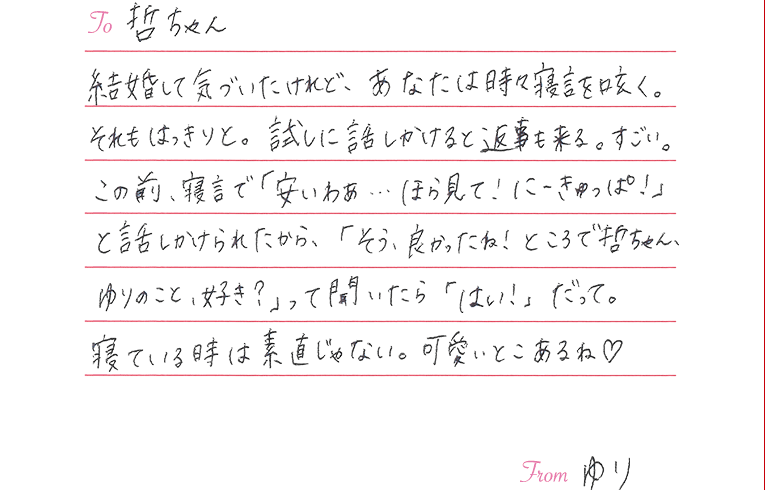 To 哲ちゃん
結婚して気づいたけれど、あなたは時々寝言を呟く。
それもはっきりと。試しに話しかけると返事も来る。すごい。
この前、寝言で「安いわぁ…ほら見て！にーきゅっぱ！」
と話しかけられたから、「そう、良かったね！ところで哲ちゃん、
ゆりのこと、好き？」って聞いたら「はい！」だって。
寝ている時は素直じゃない。可愛いとこあるね♡
From ゆり